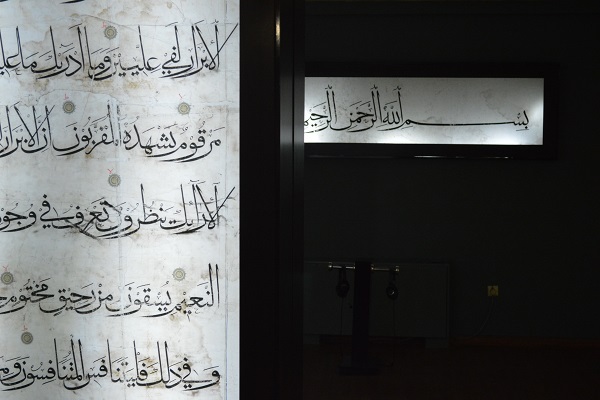 لابرار لفي عليين وما ادريك ما
مرقوم يشهده المقربون ان الابرار
لارائك ينظرون تعرف في
النعيم يسقون من رحيق مختوم
وفي ذلك فليتنافس المتنافسون
بسم الله الرحمن الرحيم